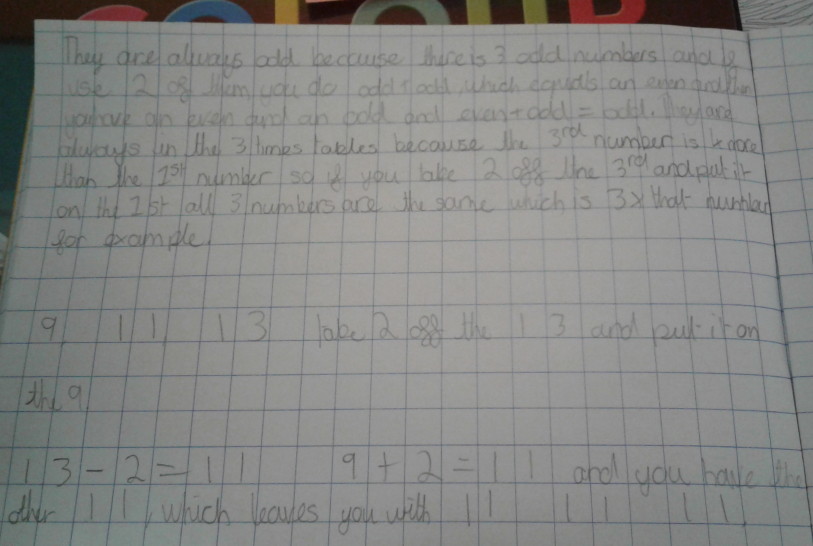 They are always odd because there is 3 odd numbers and if
use 2 of them you do odd + odd which equals an even and then
you have an even and an odd and even + odd = odd. They are
always in the 3 times tables because the 3rd number is more
than the 1st number so if you take 2 off the 3rd and put it
on the 1st all 3 numbers are the same which is 3x that number
for example.
9 11 13 take 2 off the 13 and put it on
the 9
13 - 2 = 11 9 + 2 = 11 and you have the
other 11, which leaves you with 11 11 11.